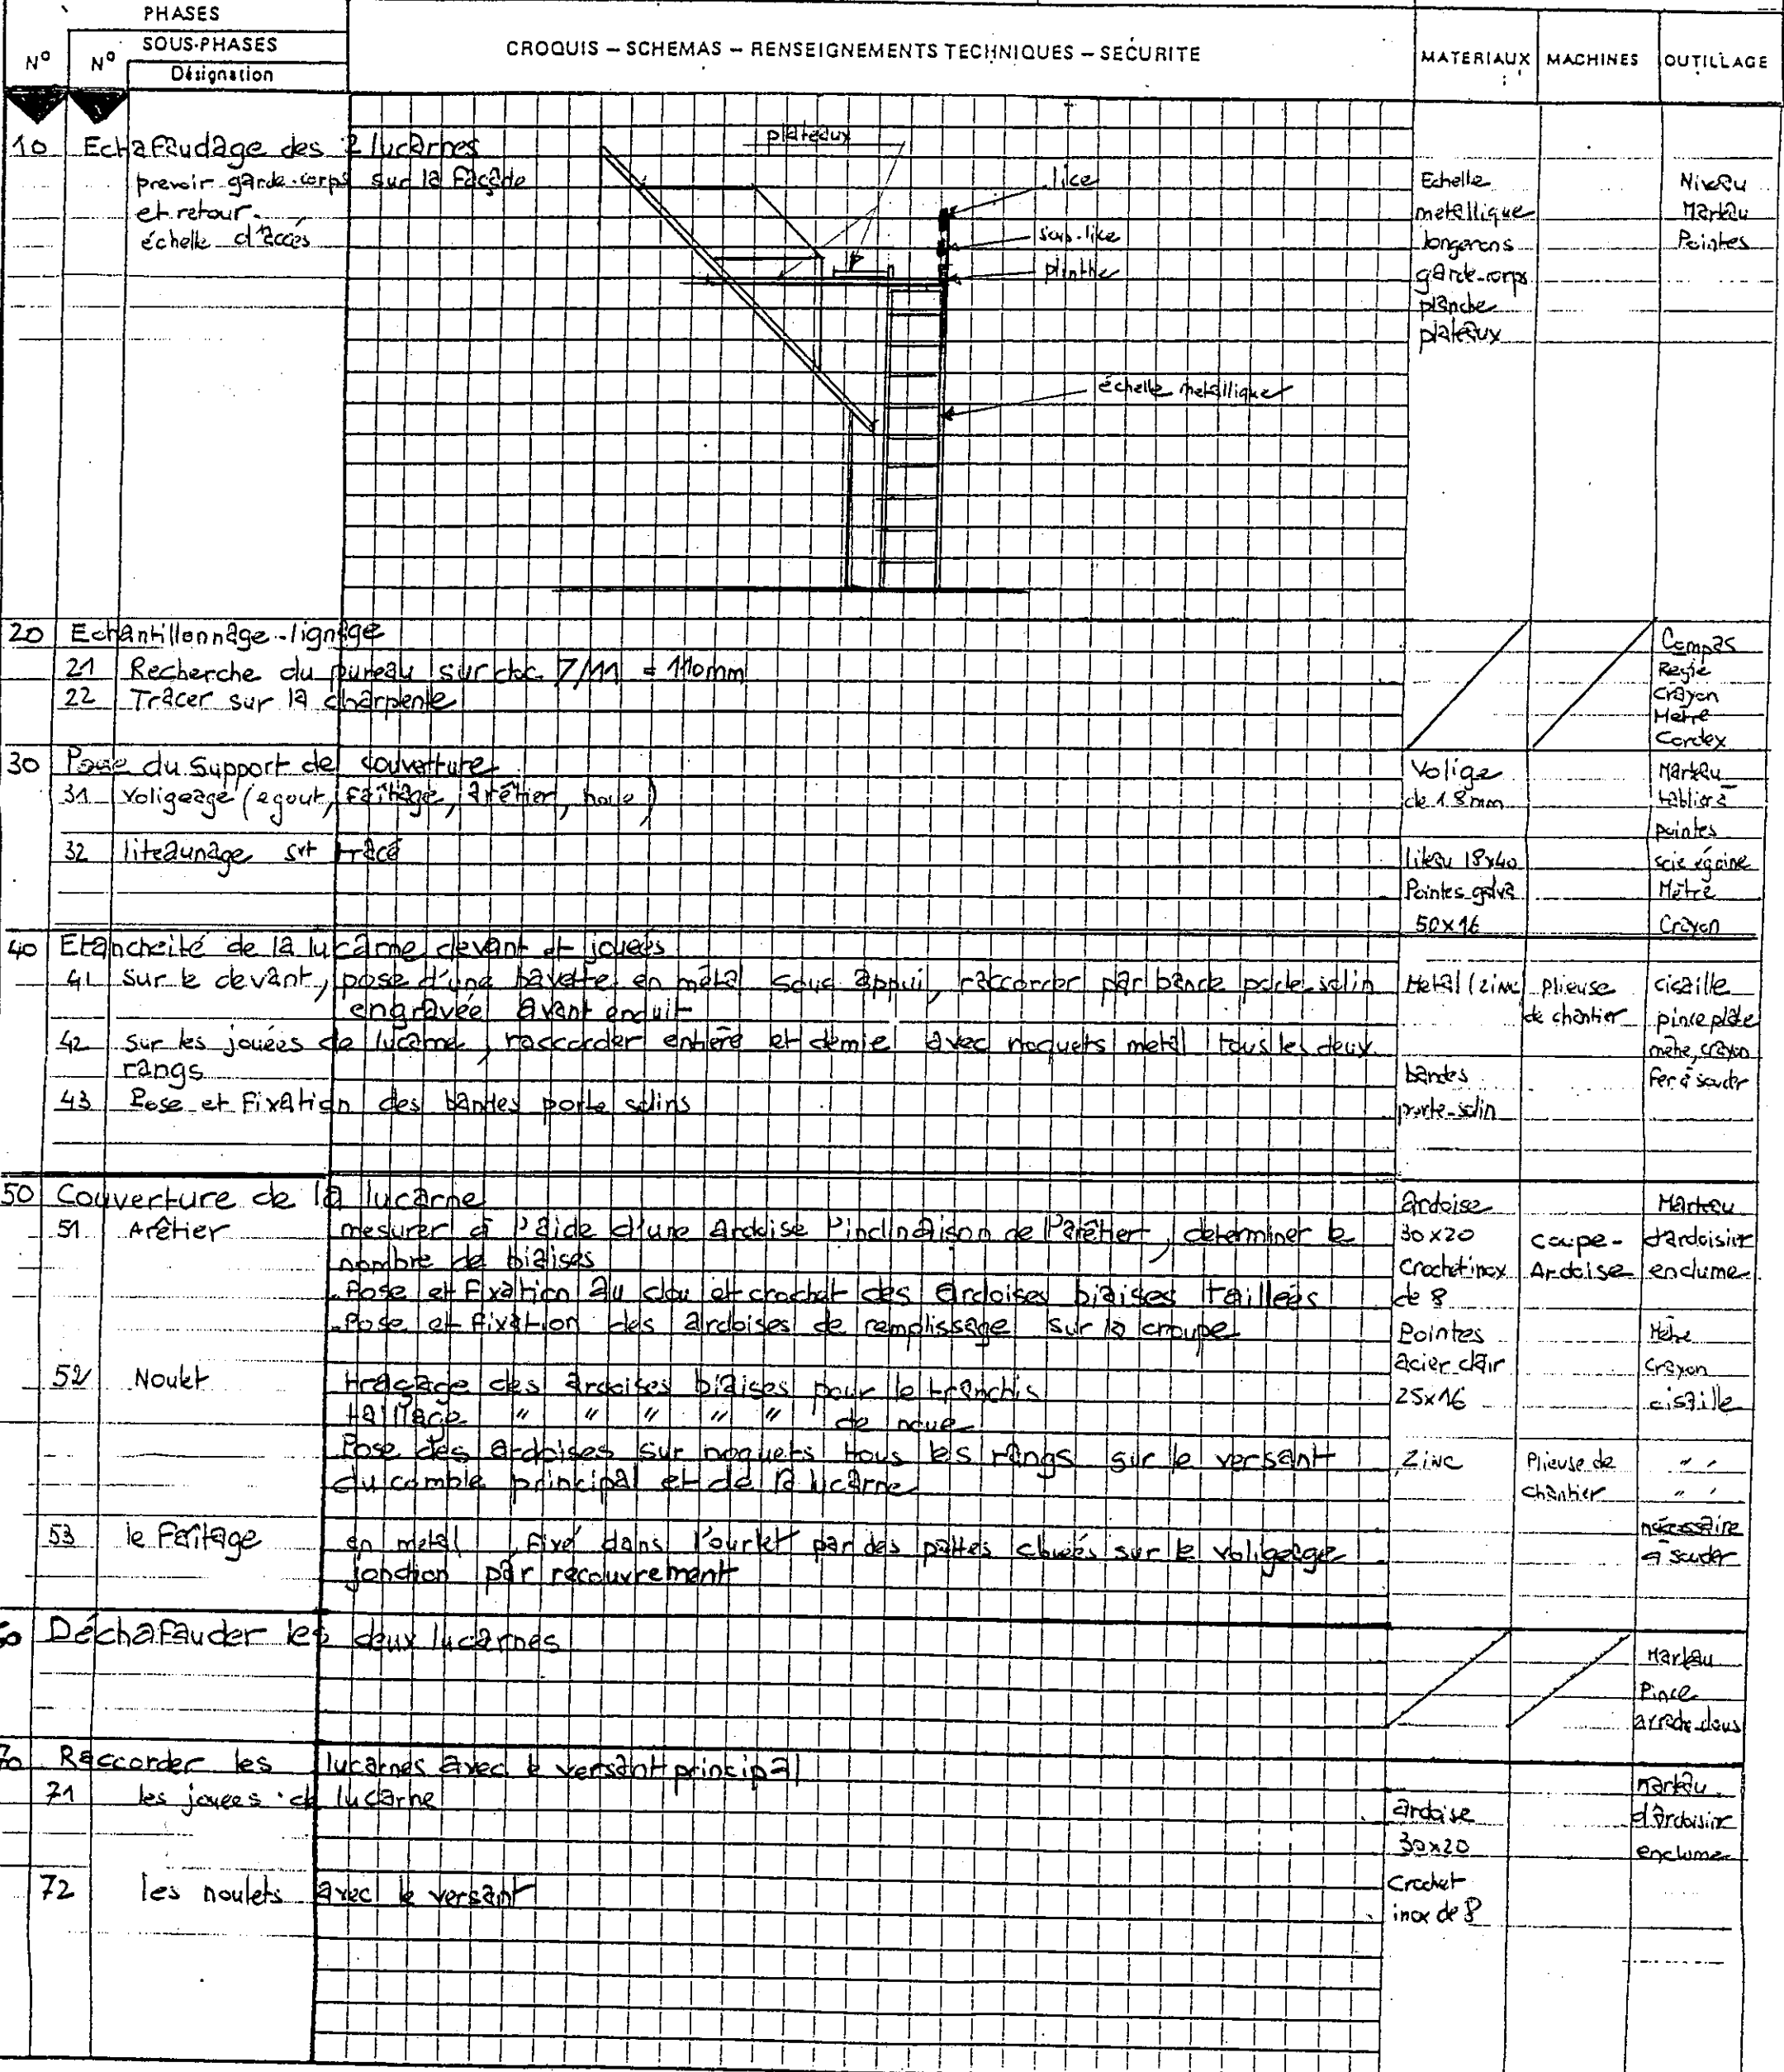 PHASES
SOUS-PHASES
N° N° Désignation
CROQUIS – SCHEMAS – RENSEIGNEMENTS TECHNIQUES – SECURITE
MATERIAUX MACHINES OUTILLAGE
10 Echafaudage des 2 lucarnes
prevoir garde-corps sur la façade
et retour.
échelle d'accès
plateaux
lice
sous-lice
plinthe
échelle metallique
Echelle
metallique
longerons
garde-corps
planche
plateaux
Niveau
Marteau
Pointes
20 Echantillonnage-lignage
21 Recherche du pureau sur doc 7/11 = 110mm
22 Tracer sur la charpente
Compas
Regle
Crayon
Metre
Cordex
30 Pose du support de couverture
31 Voligeage (egout, faîtage, arêtier, noue)
32 liteaunage srt tracé
Volige
de 18mm
liteau 18x40
Pointes galva
50x16
Marteau
tablier à
pointes
scie égoine
Mètre
Crayon
40 Etancheité de la lucarne devant et jouées
41 sur le devant, pose d'une bavette en métal sous appui, raccorder par bande porte-solin
engravée avant enduit
42 sur les jouées de lucarne, raccorder entière et demie avec noquets metal tous les deux
rangs
43 Pose et Fixation des bandes porte solins
Métal (zinc)
bandes
porte-solin
plieuse
de chantier
cisaille
pince plate
mètre, crayon
Fer à souder
50 Couverture de la lucarne
51 Arêtier
mesurer à l'aide d'une ardoise l'inclinaison de l'arêtier, determiner le
nombre de biaises
Pose et Fixation au clou et crochet des ardoises biaises taillées
Pose et fixation des ardoises de remplissage sur la croupe
52 Noulet
traçage des ardoises biaises pour le tranchis
taillage " " " " " de noue
Pose des ardoises sur noquets tous les rangs sur le versant
du comble principal et de la lucarne
53 le Faîtage
en metal, fixé dans l'ourlet par des pattes clouées sur le voligeage
jonction par recouvrement
ardoise
30x20
Crochet inox
de 8
Pointes
acier clair
25x16
Zinc
coupe-
Ardoise
Plieuse de
chantier
Marteau
d'ardoisier
enclume
Mètre
crayon
cisaille
" "
" "
nécessaire
à souder
60 Déchafauder les deux lucarnes
Marteau
Pince
arrache-clous
70 Raccorder les lucarnes avec le versant principal
71 les jouées de lucarne
72 les noulets avec le versant
ardoise
30x20
Crochet
inox de 8
marteau
d'ardoisier
enclume